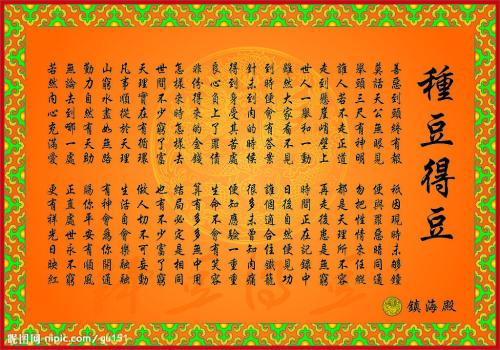 種豆得豆
善惡到頭終有報 祇因現時未够鐘
莫話天公無眼見 便與眾惡暗同通
舉頭三尺有神明 勿把性情來任縱
誰人若不走正道 都是天理所不容
走到懸崖峭壁上 再走後患是無窮
世人一舉和一動 時間正在記錄中
雖然大家看不見 日後自然便見功
到時便會有答案 誰個適合住鐵籠
針未到肉的時候 很多未曾知肉痛
得到身受其苦處 便知應驗一重重
良心負上了罪債 生命不會有笑容
非份得來的金錢 算有多多無中用
怎樣來時怎樣去 結局必定是相同
世間不少窮了富 也有不少富了窮
天理實在有循環 做人切不可妄動
凡事順從於天理 生活自會樂融融
山窮水盡如無路 有神會為你開通
勤力自然有天助 賜你平安有順風
無論去到哪一處 正直處世永不窮
若然內心充滿愛 更有祥光日映紅
鎮海殿
昵图网 nipic.com/gu151